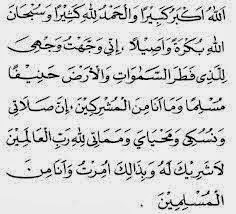 اَللهُ اَكْبَرُ كَبِيْرًا وَالْحَمْدُ لِلّٰهِ كَثِيْرًا وَسُبْحَانَ
اللهِ بُكْرَةً وَاَصِيْلًا . اِنِّى وَجَّهْتُ وَجْهِىَ
لِلَّذِى فَطَرَ السَّمٰوَاتِ وَالْاَرْضَ حَنِيْفًا
مُسْلِمًا وَمَا اَنَا مِنَ الْمُشْرِكِيْنَ . اِنَّ صَلَاتِى
وَنُسُكِى وَمَحْيَاىَ وَمَمَاتِى لِلّٰهِ رَبِّ الْعَالَمِيْنَ
لَا شَرِيْكَ لَهُ وَبِذٰلِكَ اُمِرْتُ وَاَنَا مِنَ
الْمُسْلِمِيْنَ .